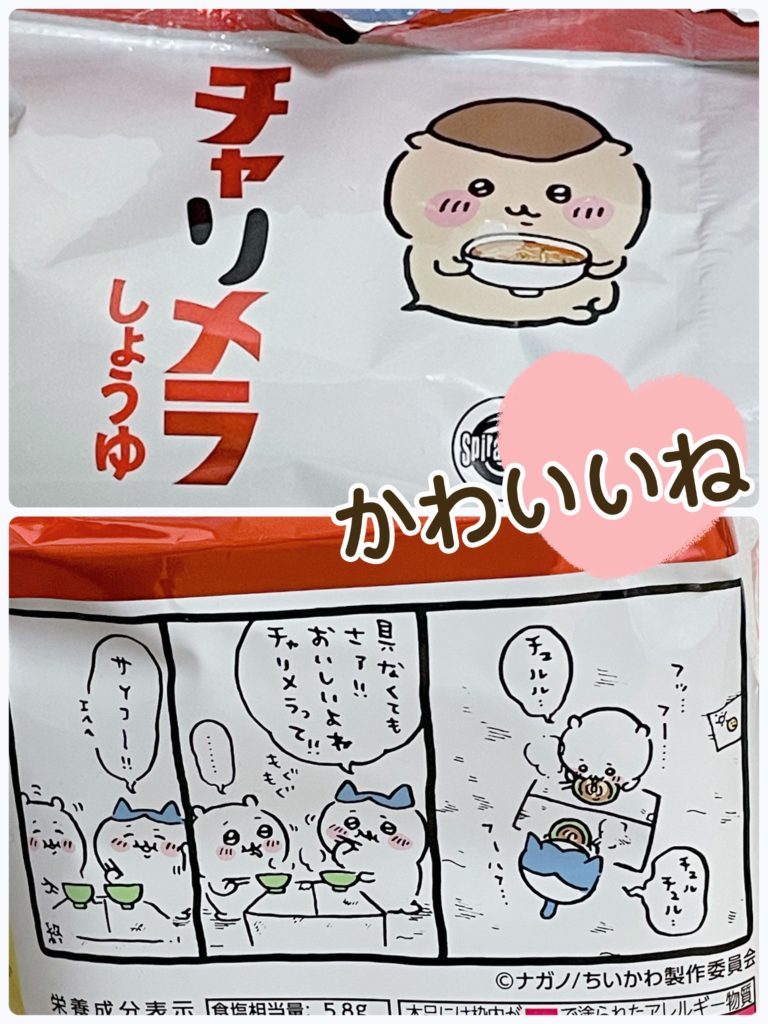 チャリメラ
しょうゆ
Spira
かわいいね
チュルル…
フッ…
フー…
フーハフ…
チュル
チュル…
具なくても
さァ!!
おいしいよね
チャリメラって!!
………
もぐ
もぐ
サイコー!!
エヘヘ
©ナガノ/ちいかわ製作委員会
栄養成分表示
食塩相当量: 5.8g
で塗られたアレルギー物質